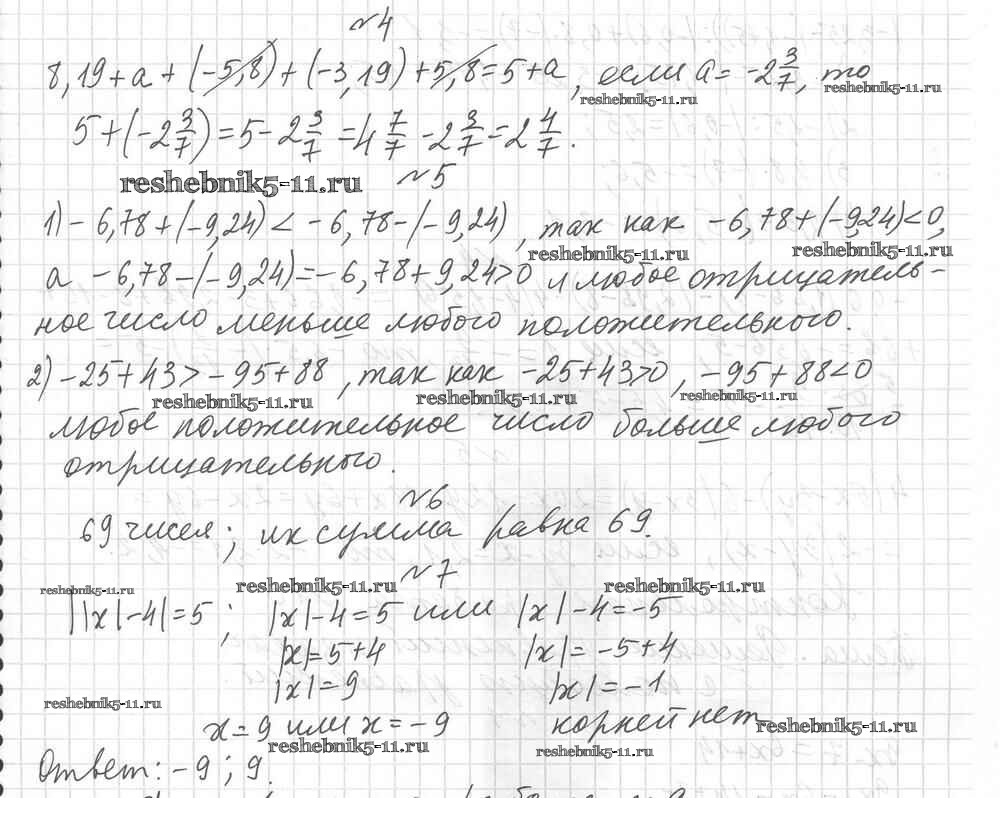 №4
8,19 + a + (-5,8) + (-3,19) + 5,8 = 5 + a, если a = -2 3/7, то
reshebnik5-11.ru reshebnik5-11.ru
5 + (-2 3/7) = 5 - 2 3/7 = 4 7/7 - 2 3/7 = 2 4/7.
reshebnik5-11.ru №5
1) -6,78 + (-9,24) < -6,78 - (-9,24), так как -6,78 + (-9,24) < 0,
reshebnik5-11.ru reshebnik5-11.ru
а -6,78 - (-9,24) = -6,78 + 9,24 > 0 и любое отрицатель-
ное число меньше любого положительного.
2) -25 + 43 > -95 + 88, так как -25 + 43 > 0, -95 + 88 < 0
reshebnik5-11.ru reshebnik5-11.ru reshebnik5-11.ru
любое положительное число больше любого
отрицательного.
№6
69 чисел; их сумма равна 69.
№7
reshebnik5-11.ru reshebnik5-11.ru reshebnik5-11.ru
||x| - 4| = 5; |x| - 4 = 5 или |x| - 4 = -5
|x| = 5 + 4 |x| = -5 + 4
|x| = 9 |x| = -1
reshebnik5-11.ru
x = 9 или x = -9 корней нет
reshebnik5-11.ru
reshebnik5-11.ru reshebnik5-11.ru
Ответ: -9; 9.